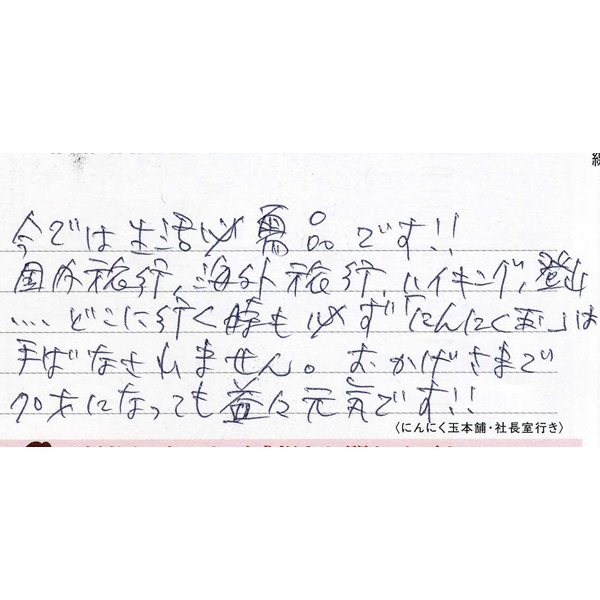 今では生活必需品です!!
国内旅行,海外旅行,ハイキング,登山
....どこに行く時も必ず「にんにく玉」は
手ばなされません。おかげさまで
70才になっても益々元気です!!
〈にんにく玉本舗・社長室行き〉